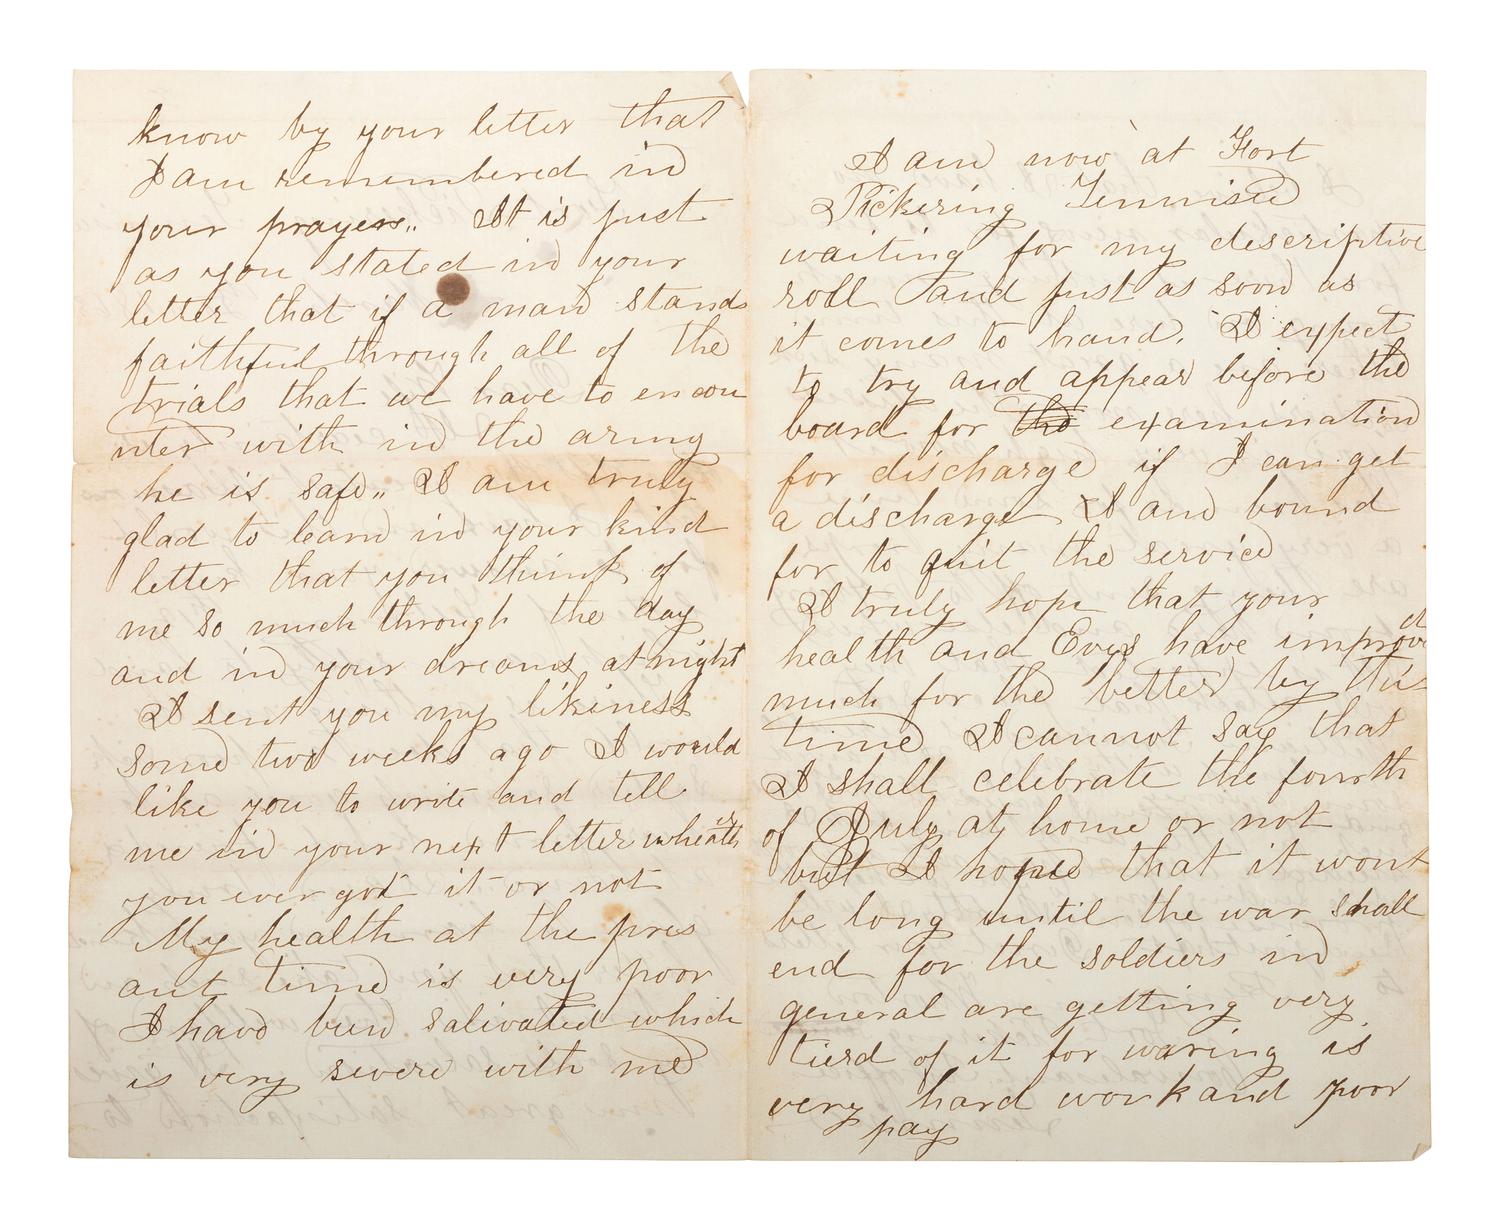 know by your letter that
I am remembered in
your prayers.. It is just
as you stated in your
letter that if a man stands
faithful through all of the
trials that we have to encou
nter with in the army
he is safe.. I am truly
glad to learn in your kind
letter that you think of
me so much through the day
and in your dreams at night
I sent you my likiness
some two weeks ago I would
like you to write and tell
me in your next letter
you ever got it or not
My health at the pres
ant time is very poor
I have been salivated which
is very severe with me
I am now at Fort
Pickering Tennisee
waiting for my descriptive
roll and just as soon as
it comes to hand. I expect
to try and appear before the
board for the examination
for discharge if I can get
a discharge I and bound
for to quit the service
I truly hope that your
health and Eyes have improved
much for the better by this
time I cannot say that
I shall celebrate the fourth
of July at home or not
but I hope that it wont
be long until the war shall
end for the soldiers in
general are getting very
tierd of it for waring is
very hard work and poor
pay